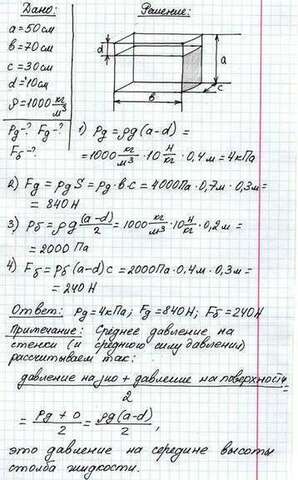 Дано:
Решение:
a = 50 см
b = 70 см
c = 30 см
d = 10 см
ρ = 1000 кг/м³
Pg-? Fg-?
Fб-?
d
a
b
c
1) Pg = ρg(a-d) =
= 1000 кг/м³ · 10 н/кг · 0,4 м = 4кПа
2) Fg = pg S = pg · b · c = 4000Па · 0,7м · 0,3м =
= 840 Н
3) Pб = ρg (a-d)/2 = 1000 кг/м³ · 10 н/кг · 0,2 м =
= 2000 Па
4) Fб = Pб (a-d) c = 2000Па · 0,4м · 0,3м =
= 240 Н
Ответ: Pg = 4кПа; Fg = 840Н; Fб = 240Н
Примечание: Среднее давление на
стенки (и среднюю силу давления)
рассчитываем так:
давление на дно + давление на поверхность / 2 =
= Pg + 0 / 2 = ρg(a-d) / 2,
это давление на середине высоты
столба жидкости.